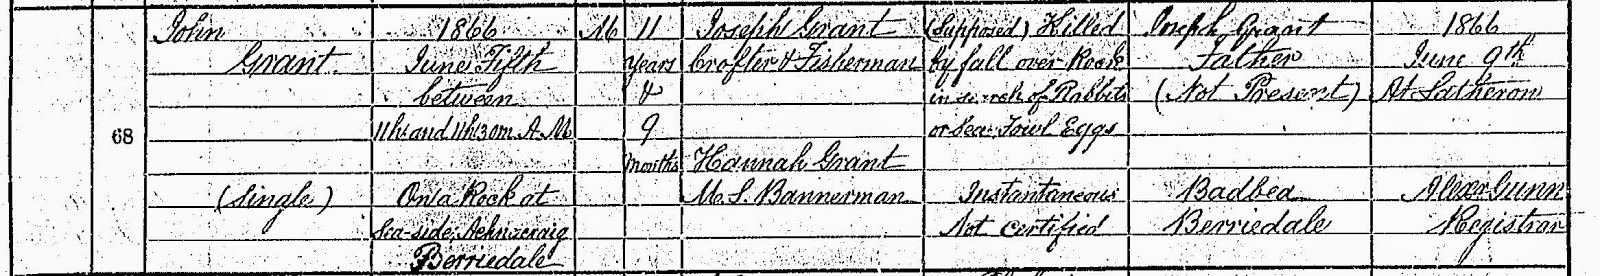 68
John
Grant
(Single)
1866
June Fifth
between
11h. and 11h. 30m. A.M.
On a Rock at
Sea-side,
Berriedale
M
11
years
&
9
months
Joseph Grant
Crofter & Fisherman
Hannah Grant
M.S. Bannerman
(Supposed) Killed
by fall over Rock
in search of Rabbits
or Sea-Fowl Eggs
Instantaneous
Not Certified
Joseph Grant
Father
(Not Present)
Badbea
Berriedale
1866
June 9th
At Latheron
Alexr Gunn
Registrar